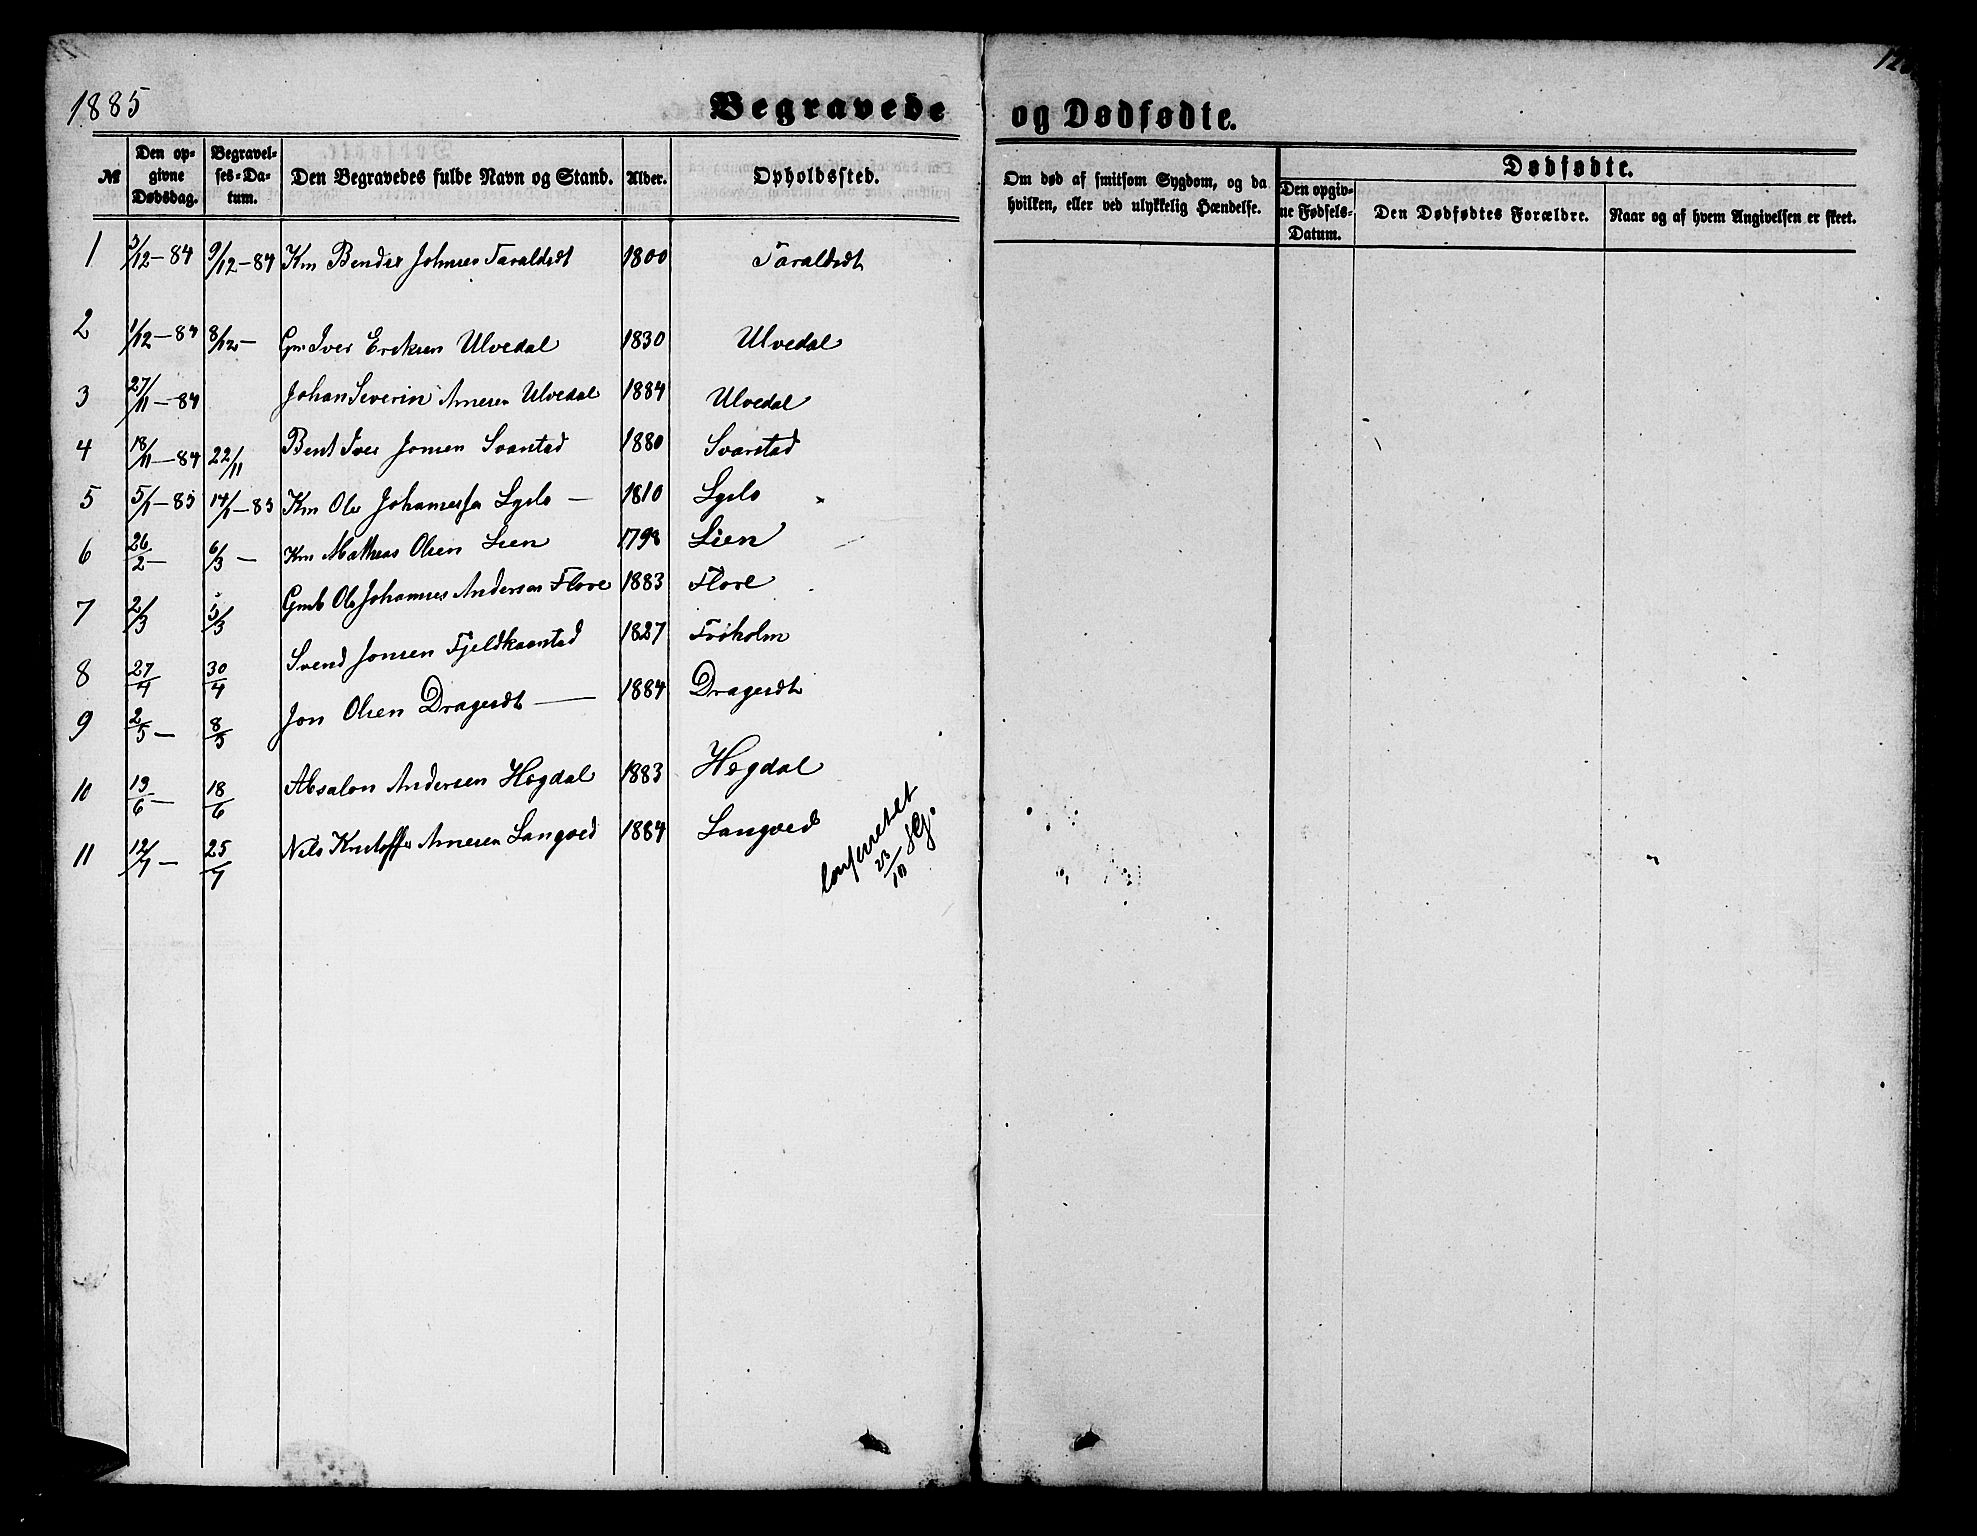 1885
Begravede og Dødfødte.
№
Den opgivne Dødsdag.
Begravelses-Datum.
Den Begravedes fulde Navn og Stand.
Alder.
Opholdssted.
Om død af smitsom Sygdom, og da hvilken, eller ved ulykkelig Hændelse.
Dødfødte.
Den opgivne Fødsels-Datum.
Den Dødfødtes Forældre.
Naar og af hvem Angivelsen er skeet.
1 3/12-84 9/12-84 Km Johnsen 1800
2 1/12-84 8/12- Gm Iver Eriksen Ulvedal 1830 Ulvedal
3 27/11-84 Johan Severin Arnesen Ulvedal 1884 Ulvedal
4 18/11-84 22/11 Bent Iver Jonsen Svarstad 1880 Svarstad
5 5/1-85 14/1-85 Km Ole 1810
6 26/2- 6/3- Km Mathias Olsen Lien 1798 Lien
7 2/3 5/3 Ole Johannes Andersen Flore 1883 Flore
8 27/4 30/4 Svend Jonsen 1827 Frøholm
9 2/5- 8/5 Jon Olsen Dragesdt — 1884 Dragesdt
10 13/6- 18/6 Absalon Andersen Høgdal 1883 Høgdal
11 12/7- 25/7 Nils Kristoffer Arnesen Langved 1884 Langved